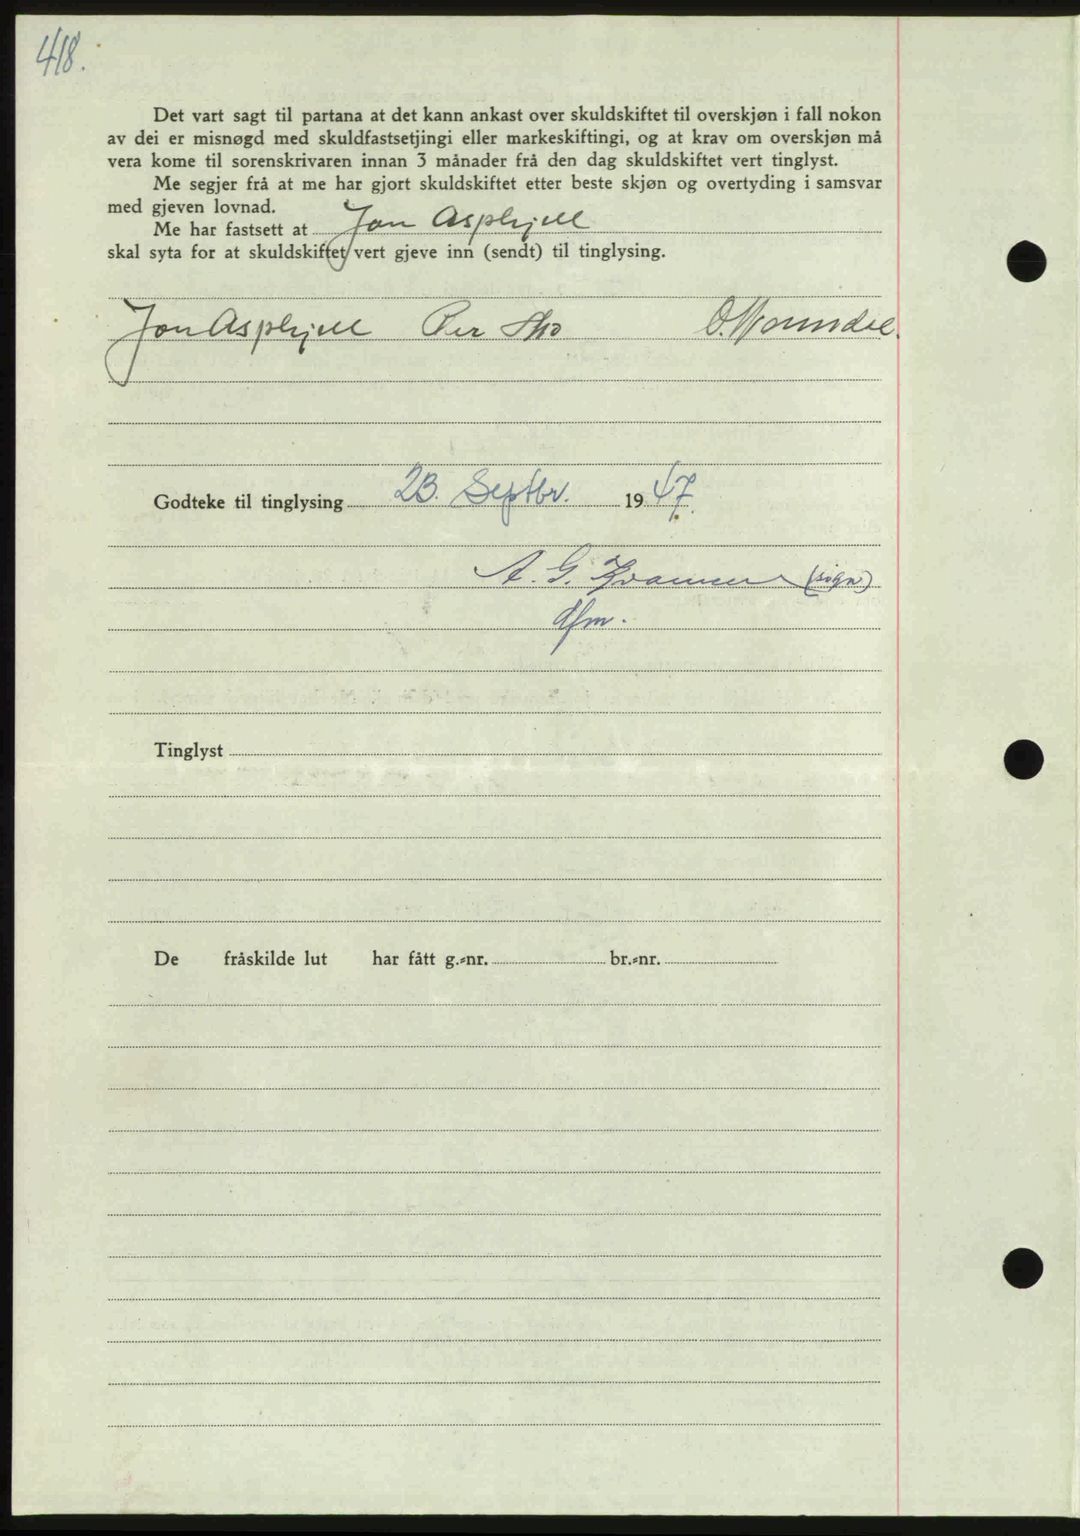 418.
Det vart sagt til partana at det kann ankast over skuldskiftet til overskjøn i fall nokon
av dei er misnøgd med skuldfastsetjingi eller markeskiftingi, og at krav om overskjøn må
vera kome til sorenskrivaren innan 3 månader frå den dag skuldskiftet vert tinglyst.
Me segjer frå at me har gjort skuldskiftet etter beste skjøn og overtyding i samsvar
med gjeven lovnad.
Me har fastsett at Jon Asphjell
skal syta for at skuldskiftet vert gjeve inn (sendt) til tinglysing.
Jon Asphjell Per O.
Godteke til tinglysing 23. Septbr. 1947.
A. G. (sign)
dfm.
Tinglyst
De fråskilde lut har fått g.-nr. br.-nr.